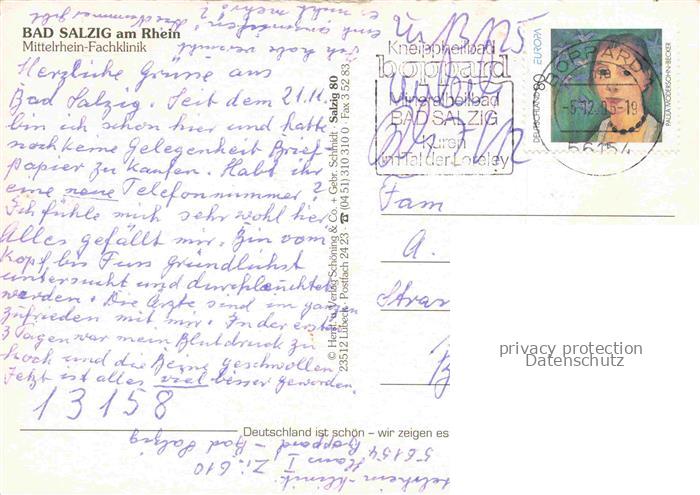 BAD SALZIG am Rhein
Mittelrhein-Fachklinik
Herzliche Grüsse aus
Bad Salzig. Seit dem 21.11.
bin ich schon hier und hatte
noch keine Gelegenheit Brief-
papier zu kaufen. Habt ihr
eine neue Telefonnummer?
Ich fühle mich sehr wohl hier
Alles gefällt mir. Bin vom
Kopf bis Fuss gründlichst
untersucht und durchleuchtet
worden. Die Ärzte sind im ganzen
zufrieden mit mir. In der ersten
3 Tagen war mein Blutdruck zu
hoch und die Beine geschwollen
Jetzt ist alles viel besser geworden.
13158
© Herst. u. Verlag Schöning & Co. + Gebr. Schmidt · Salzig 80
23512 Lübeck · Postfach 24 23 · ☎ (04 51) 310 310 0 Fax 3 52 83
Kneippheilbad
boppard
Mineralheilbad
BAD SALZIG
Kuren
im Tal der Loreley
BOPPARD
56154
EUROPA
DEUTSCHLAND 80
PAULA MODERSOHN-BECKER
Fam
A.
Stras
B
privacy protection
Datenschutz
Deutschland ist schön – wir zeigen es
56154 Boppard - Bad Salzig
Haus I Zi. 610